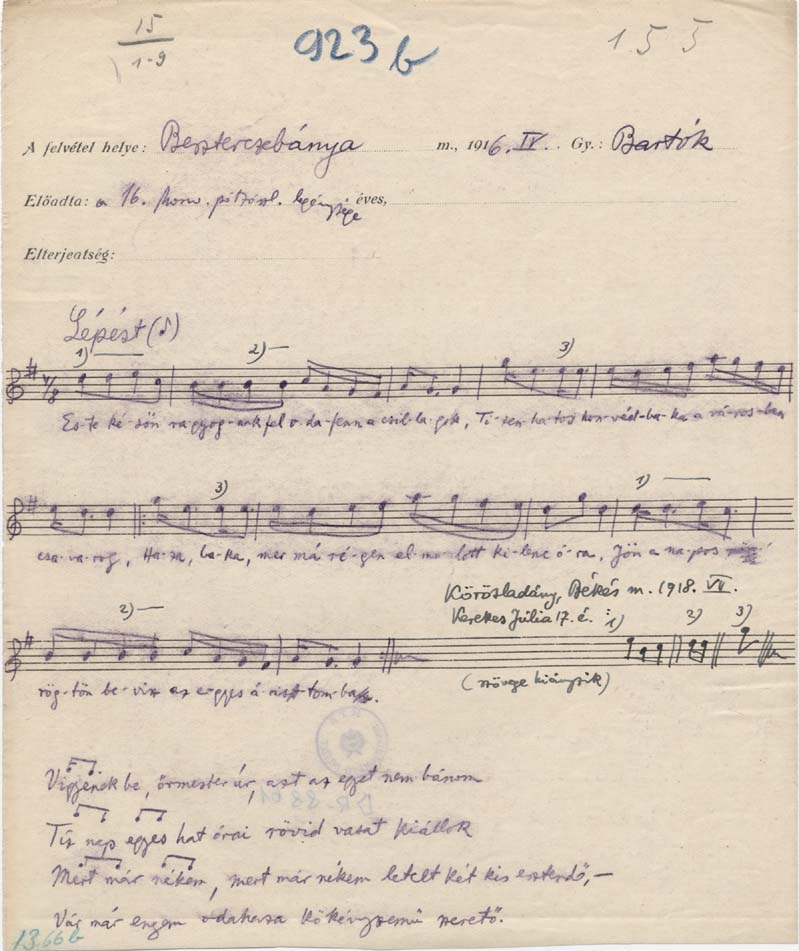 15
1-9
923 b
155
A felvétel helye: Besztercebánya m., 1916. IV. Gy.: Bartók
Előadta: a 16. honv. pótzászl. legénysége éves,
Elterjeatség:
Lépést (♪)
1) 2) 3)
4/8
Es-te ké-sőn ragyog-nak fel o-da-fenn a csil-la-gok, Ti-zen-ha-tos hon-véd-ba-ka a vá-ros-ban
3) 1)
csa-va-rog, Ha-za, ba-ka, mer má ré-gen el-mu-lott ki-lenc ó-ra, Jön a na-pos
Körösladány, Békés m. 1918. VII.
2) Kerekes Júlia 17. é. : 1) 2) 3)
rög-tön be-visz az e-gyes á-ris-tom-ba.
(szövege hiányzik)
Vigyenek be, őrmester úr, azt az egyet nem bánom
Tíz nap egyes hat órai rövid vasat kiállok
Mert már nékem, mert már nékem letelt két kis esztendő,—
Vár már engem odahaza kökényszemű szerető.
1366b